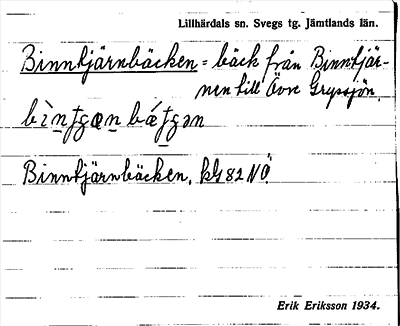 Lillhärdals sn. Svegs tg. Jämtlands län.
Binntjärnbäcken = bäck från Binntjär-
nen till Övre Grypsjön.
Binntjärnbäcken, kbl 82 NÖ.
Erik Eriksson 1934.